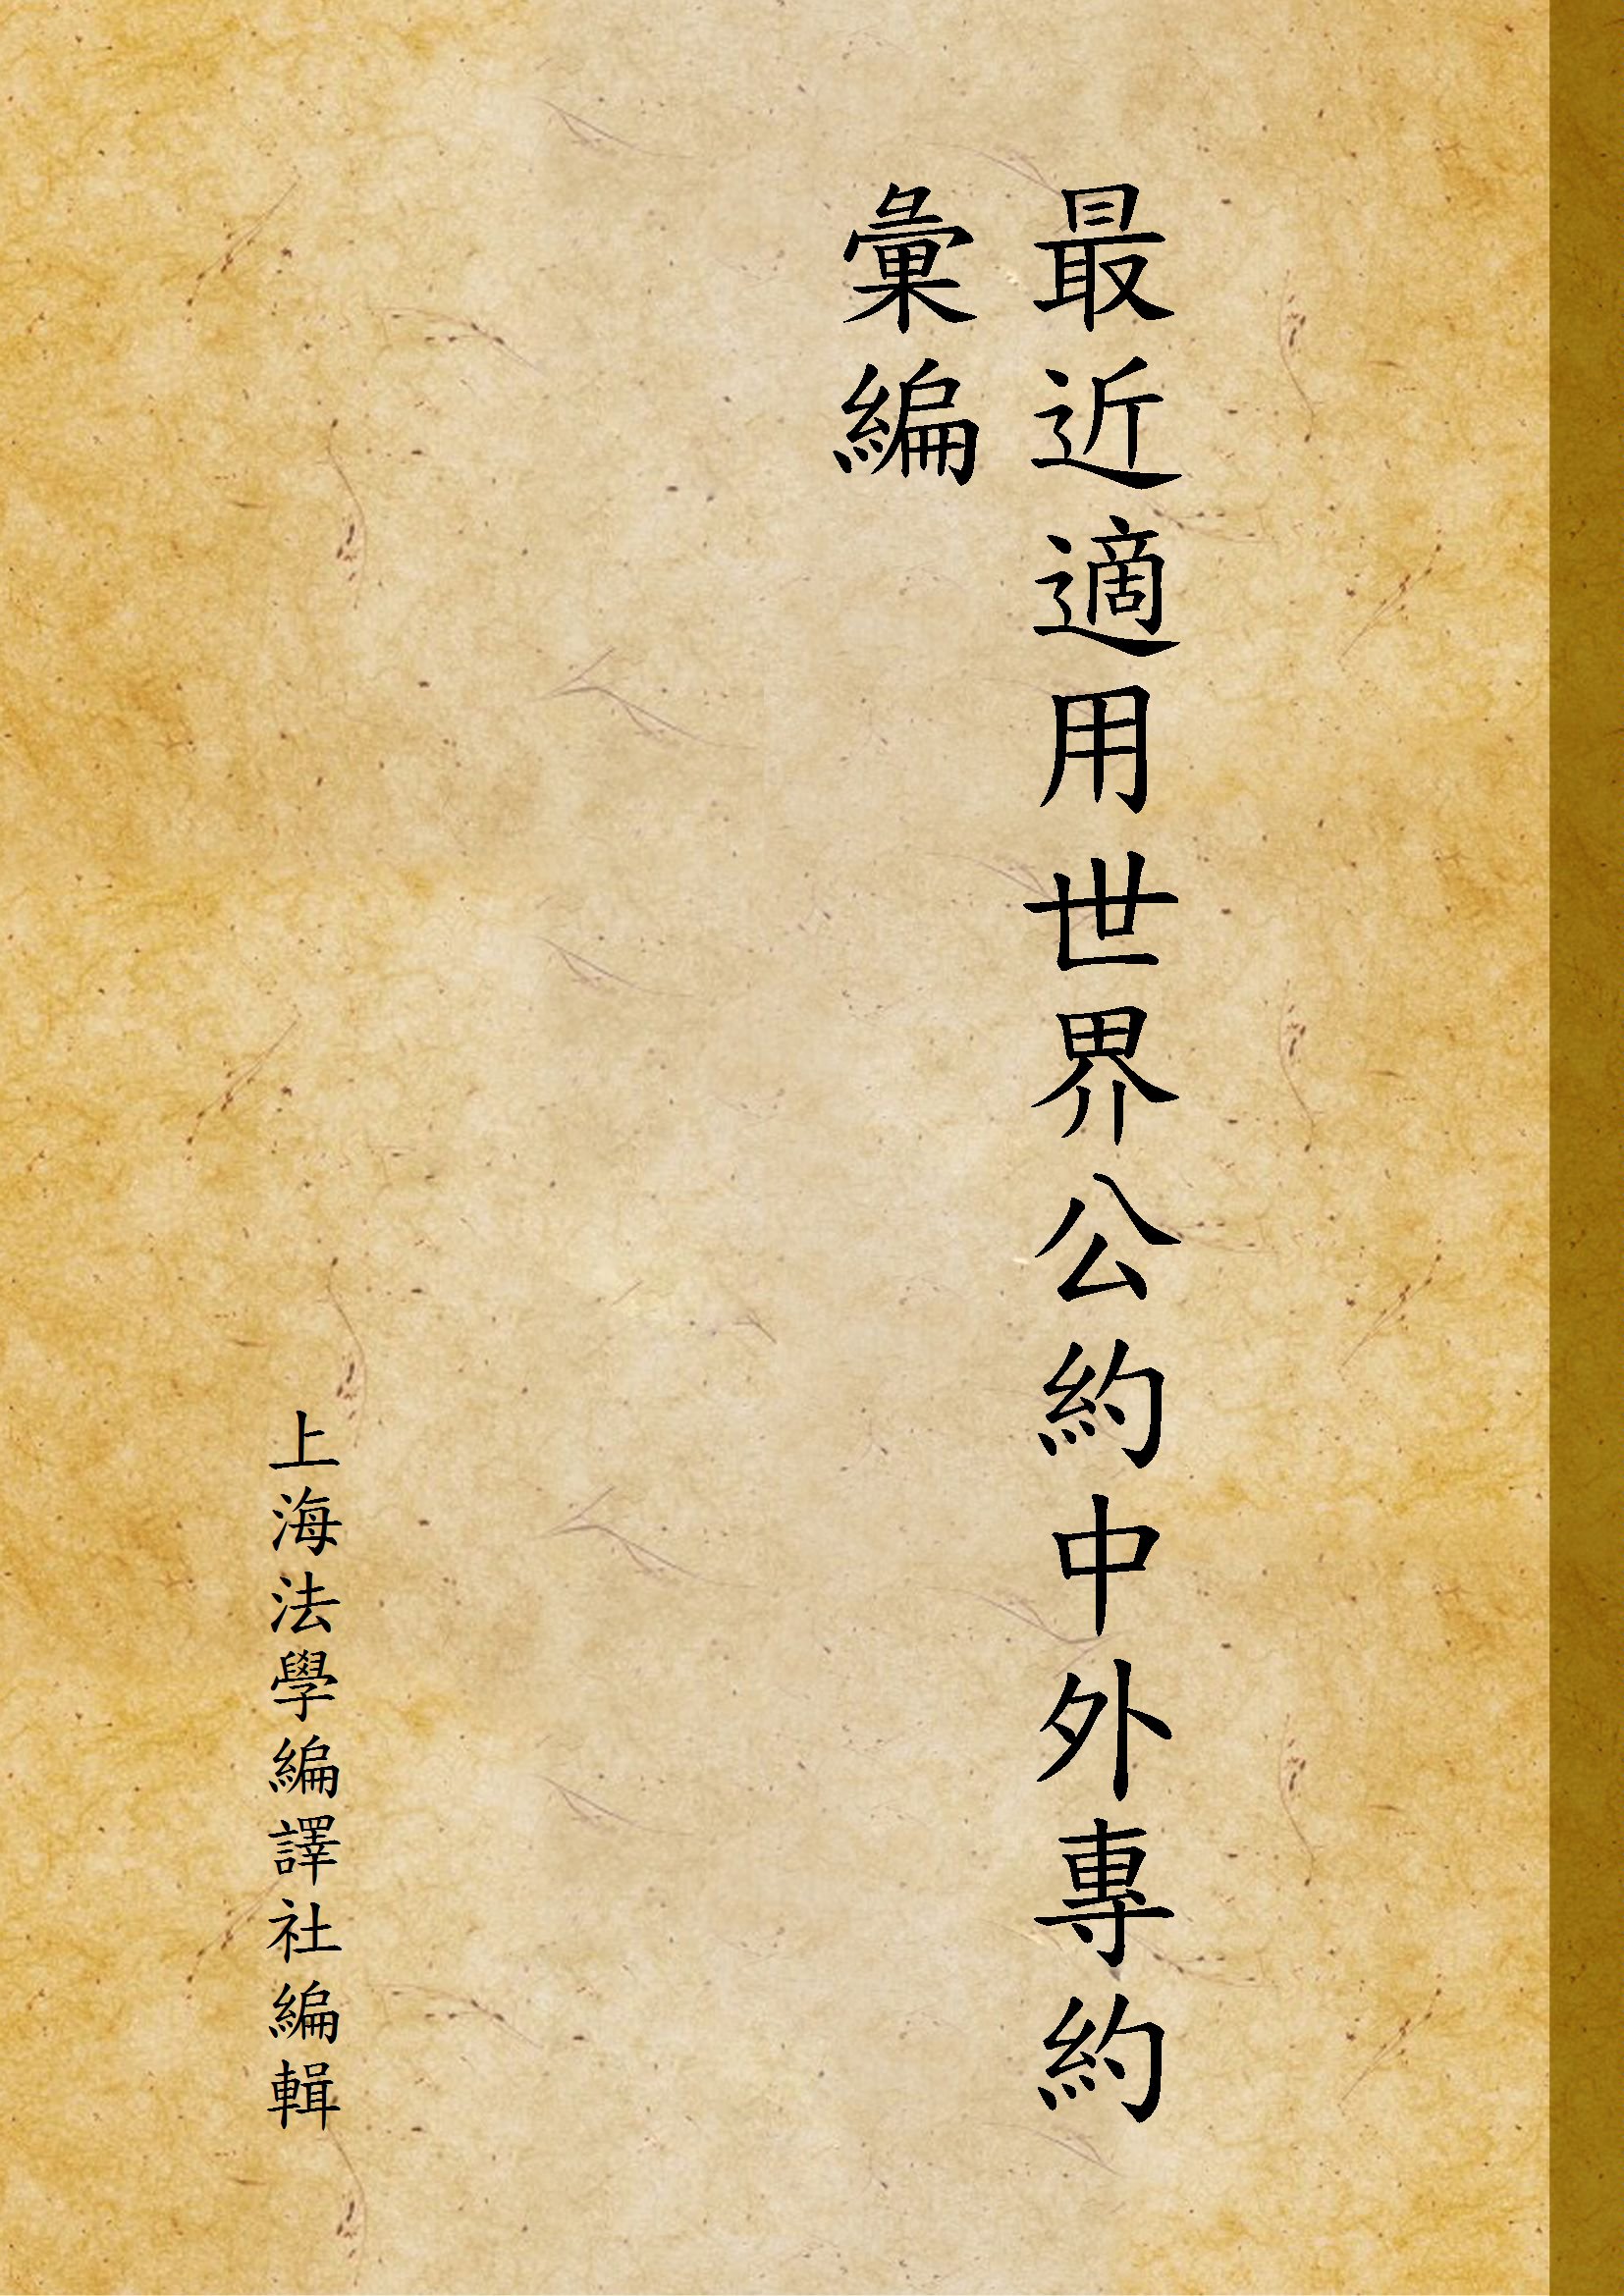 最近適用世界公約中外專約
彙編
上海法學編譯社編輯